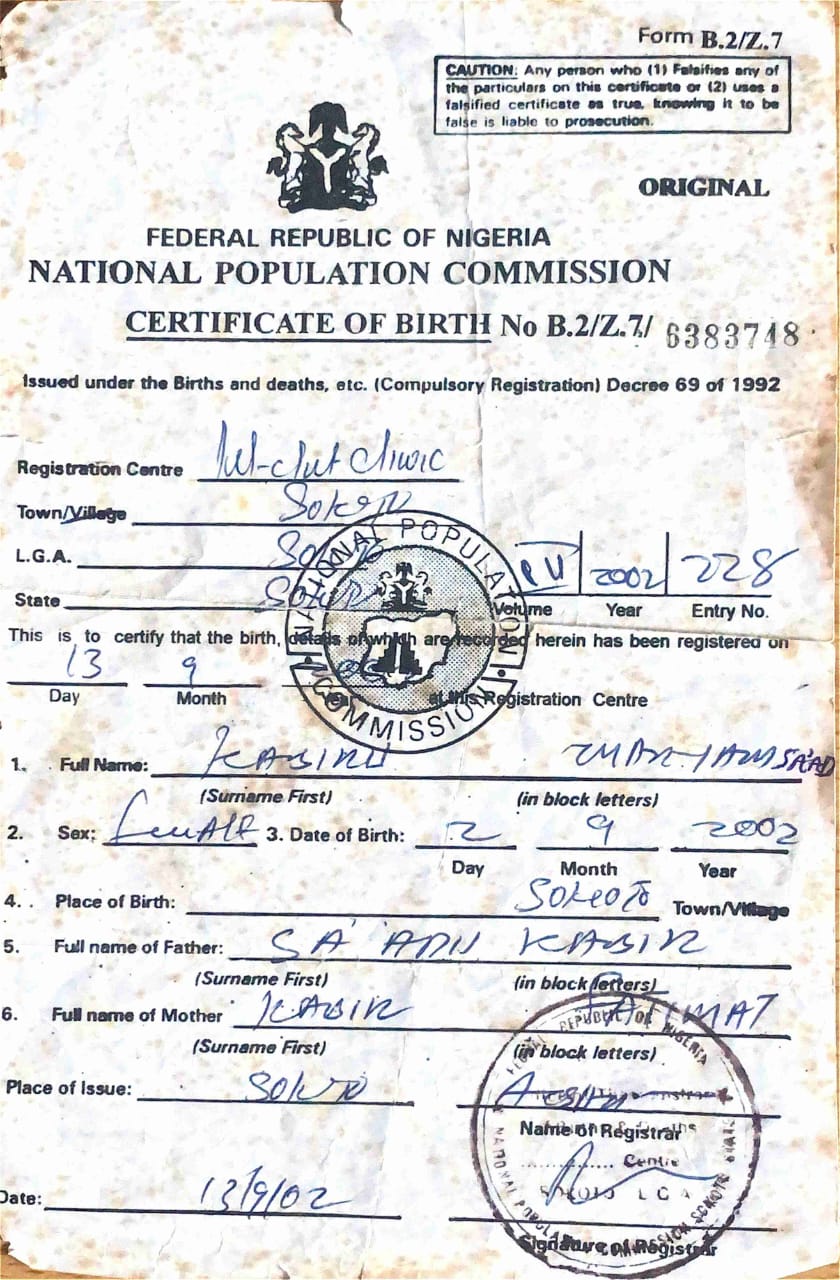 Form B.2/Z.7
CAUTION: Any person who (1) Falsifies any of
the particulars on this certificate or (2) uses a
falsified certificate as true, knowing it to be
false is liable to prosecution.
ORIGINAL
FEDERAL REPUBLIC OF NIGERIA
NATIONAL POPULATION COMMISSION
CERTIFICATE OF BIRTH No B.2/Z.7/ 6383748
Issued under the Births and deaths, etc. (Compulsory Registration) Decree 69 of 1992
Registration Centre
Town/Village
L.G.A.
State
2002 228
Volume Year Entry No.
NATIONAL POPULATION COMMISSION
This is to certify that the birth, details of which are recorded herein has been registered on
13 9
Day Month Year at this Registration Centre
1. Full Name: KABIRU MARYAM SA'AD
(Surname First) (in block letters)
2. Sex: Female 3. Date of Birth: 2 9 2002
Day Month Year
4. Place of Birth: SOKOTO Town/Village
5. Full name of Father: SA'ADU KABIR
(Surname First) (in block letters)
6. Full name of Mother KABIR FATIMAT
(Surname First) (in block letters)
Place of Issue:
Name of Registrar
Centre
SOKOTO LGA
Date: 13/9/02
Signature of Registrar
REPUBLIC OF NIGERIA
NATIONAL POPULATION COMMISSION SOKOTO STATE